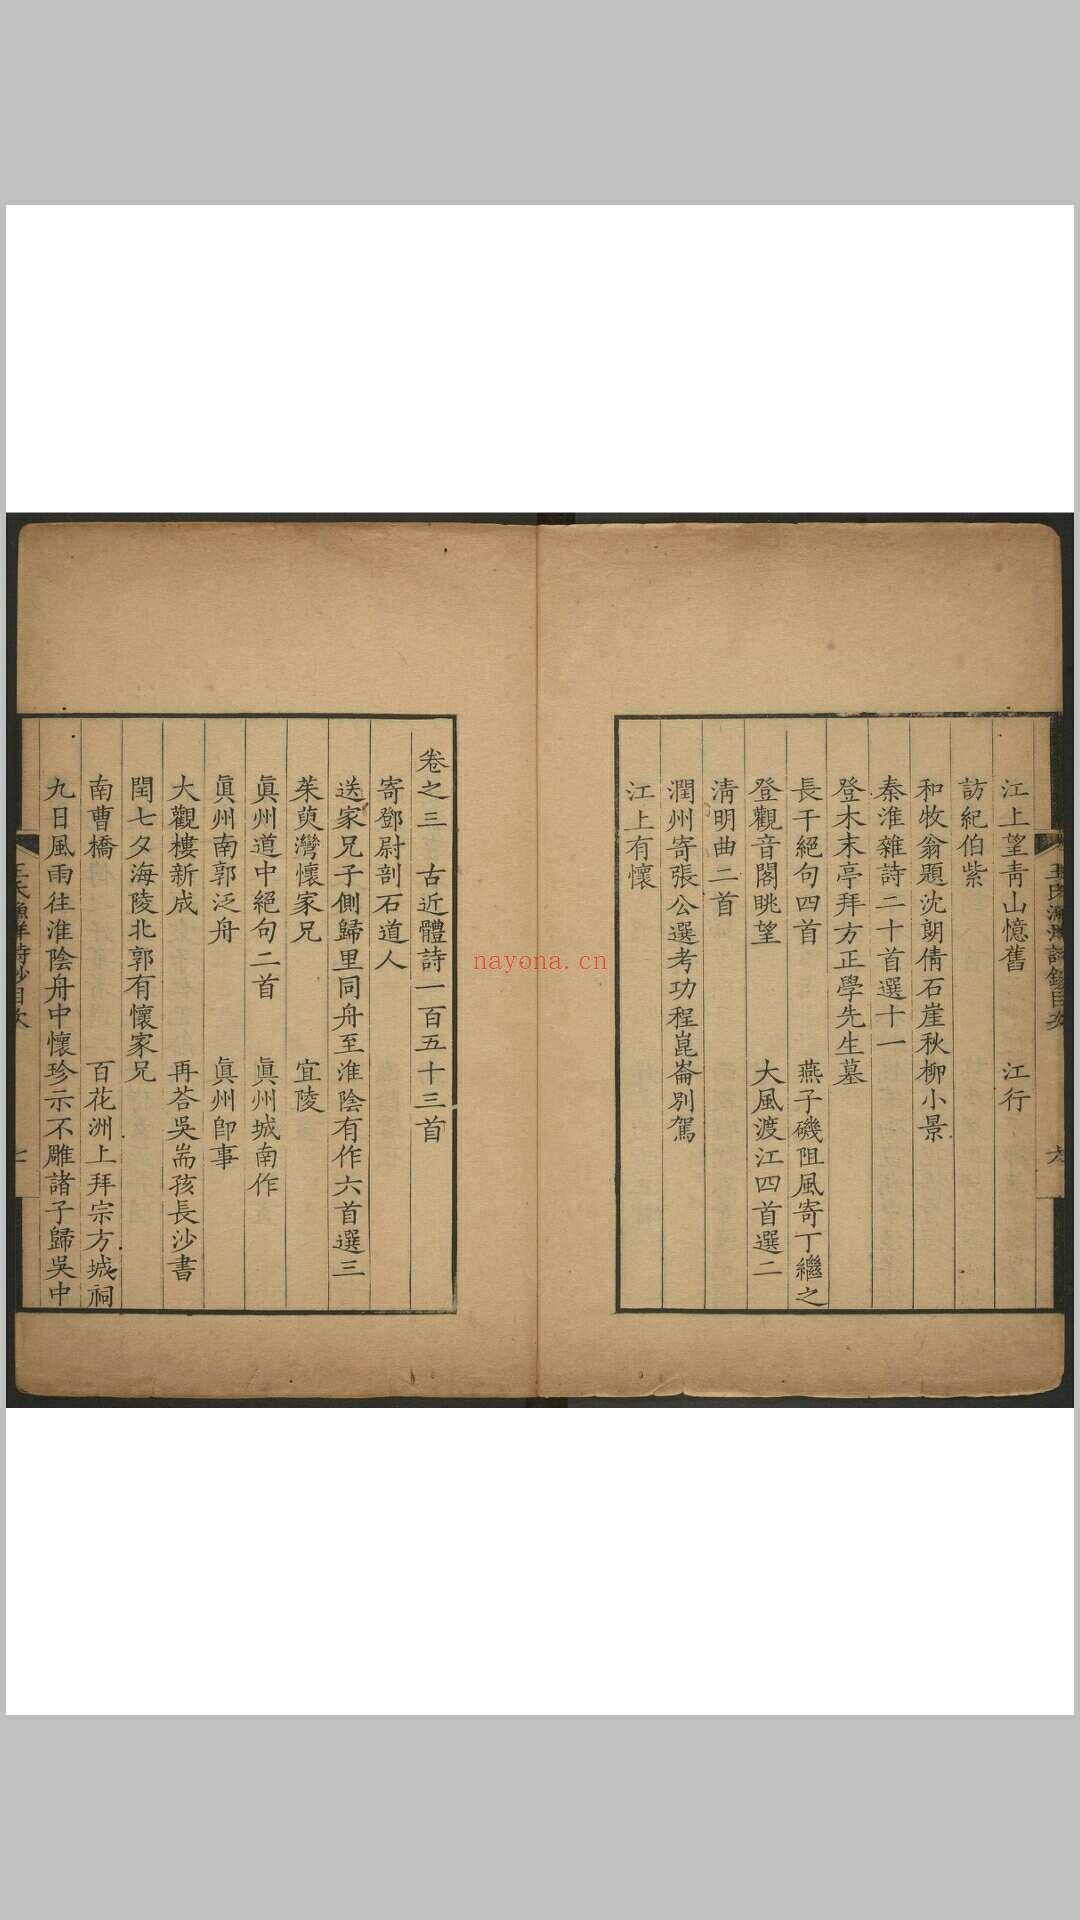 江上望青山憶舊　江行
訪紀伯紫
和牧翁題沈朗倩石崖秋柳小景
秦淮雜詩二十首選十一
登木末亭拜方正學先生墓
長干絕句四首　燕子磯阻風寄丁繼之
登觀音閣眺望　大風渡江四首選二
清明曲二首
潤州寄張公選考功程崑崙別駕
江上有懷
卷之三　古近體詩一百五十三首
寄鄧尉剖石道人
送家兄子側歸里同舟至淮陰有作六首選三
茱萸灣懷家兄　宜陵
眞州道中絕句二首　眞州城南作
眞州南郭泛舟　眞州卽事
大觀樓新成　再荅吳耑孩長沙書
閏七夕海陵北郭有懷家兄
南曹橋　百花洲上拜宗方城祠
九日風雨往淮陰舟中懷珍示不雕諸子歸吳中
王氏漁洋詩鈔目次　七
nayona.cn